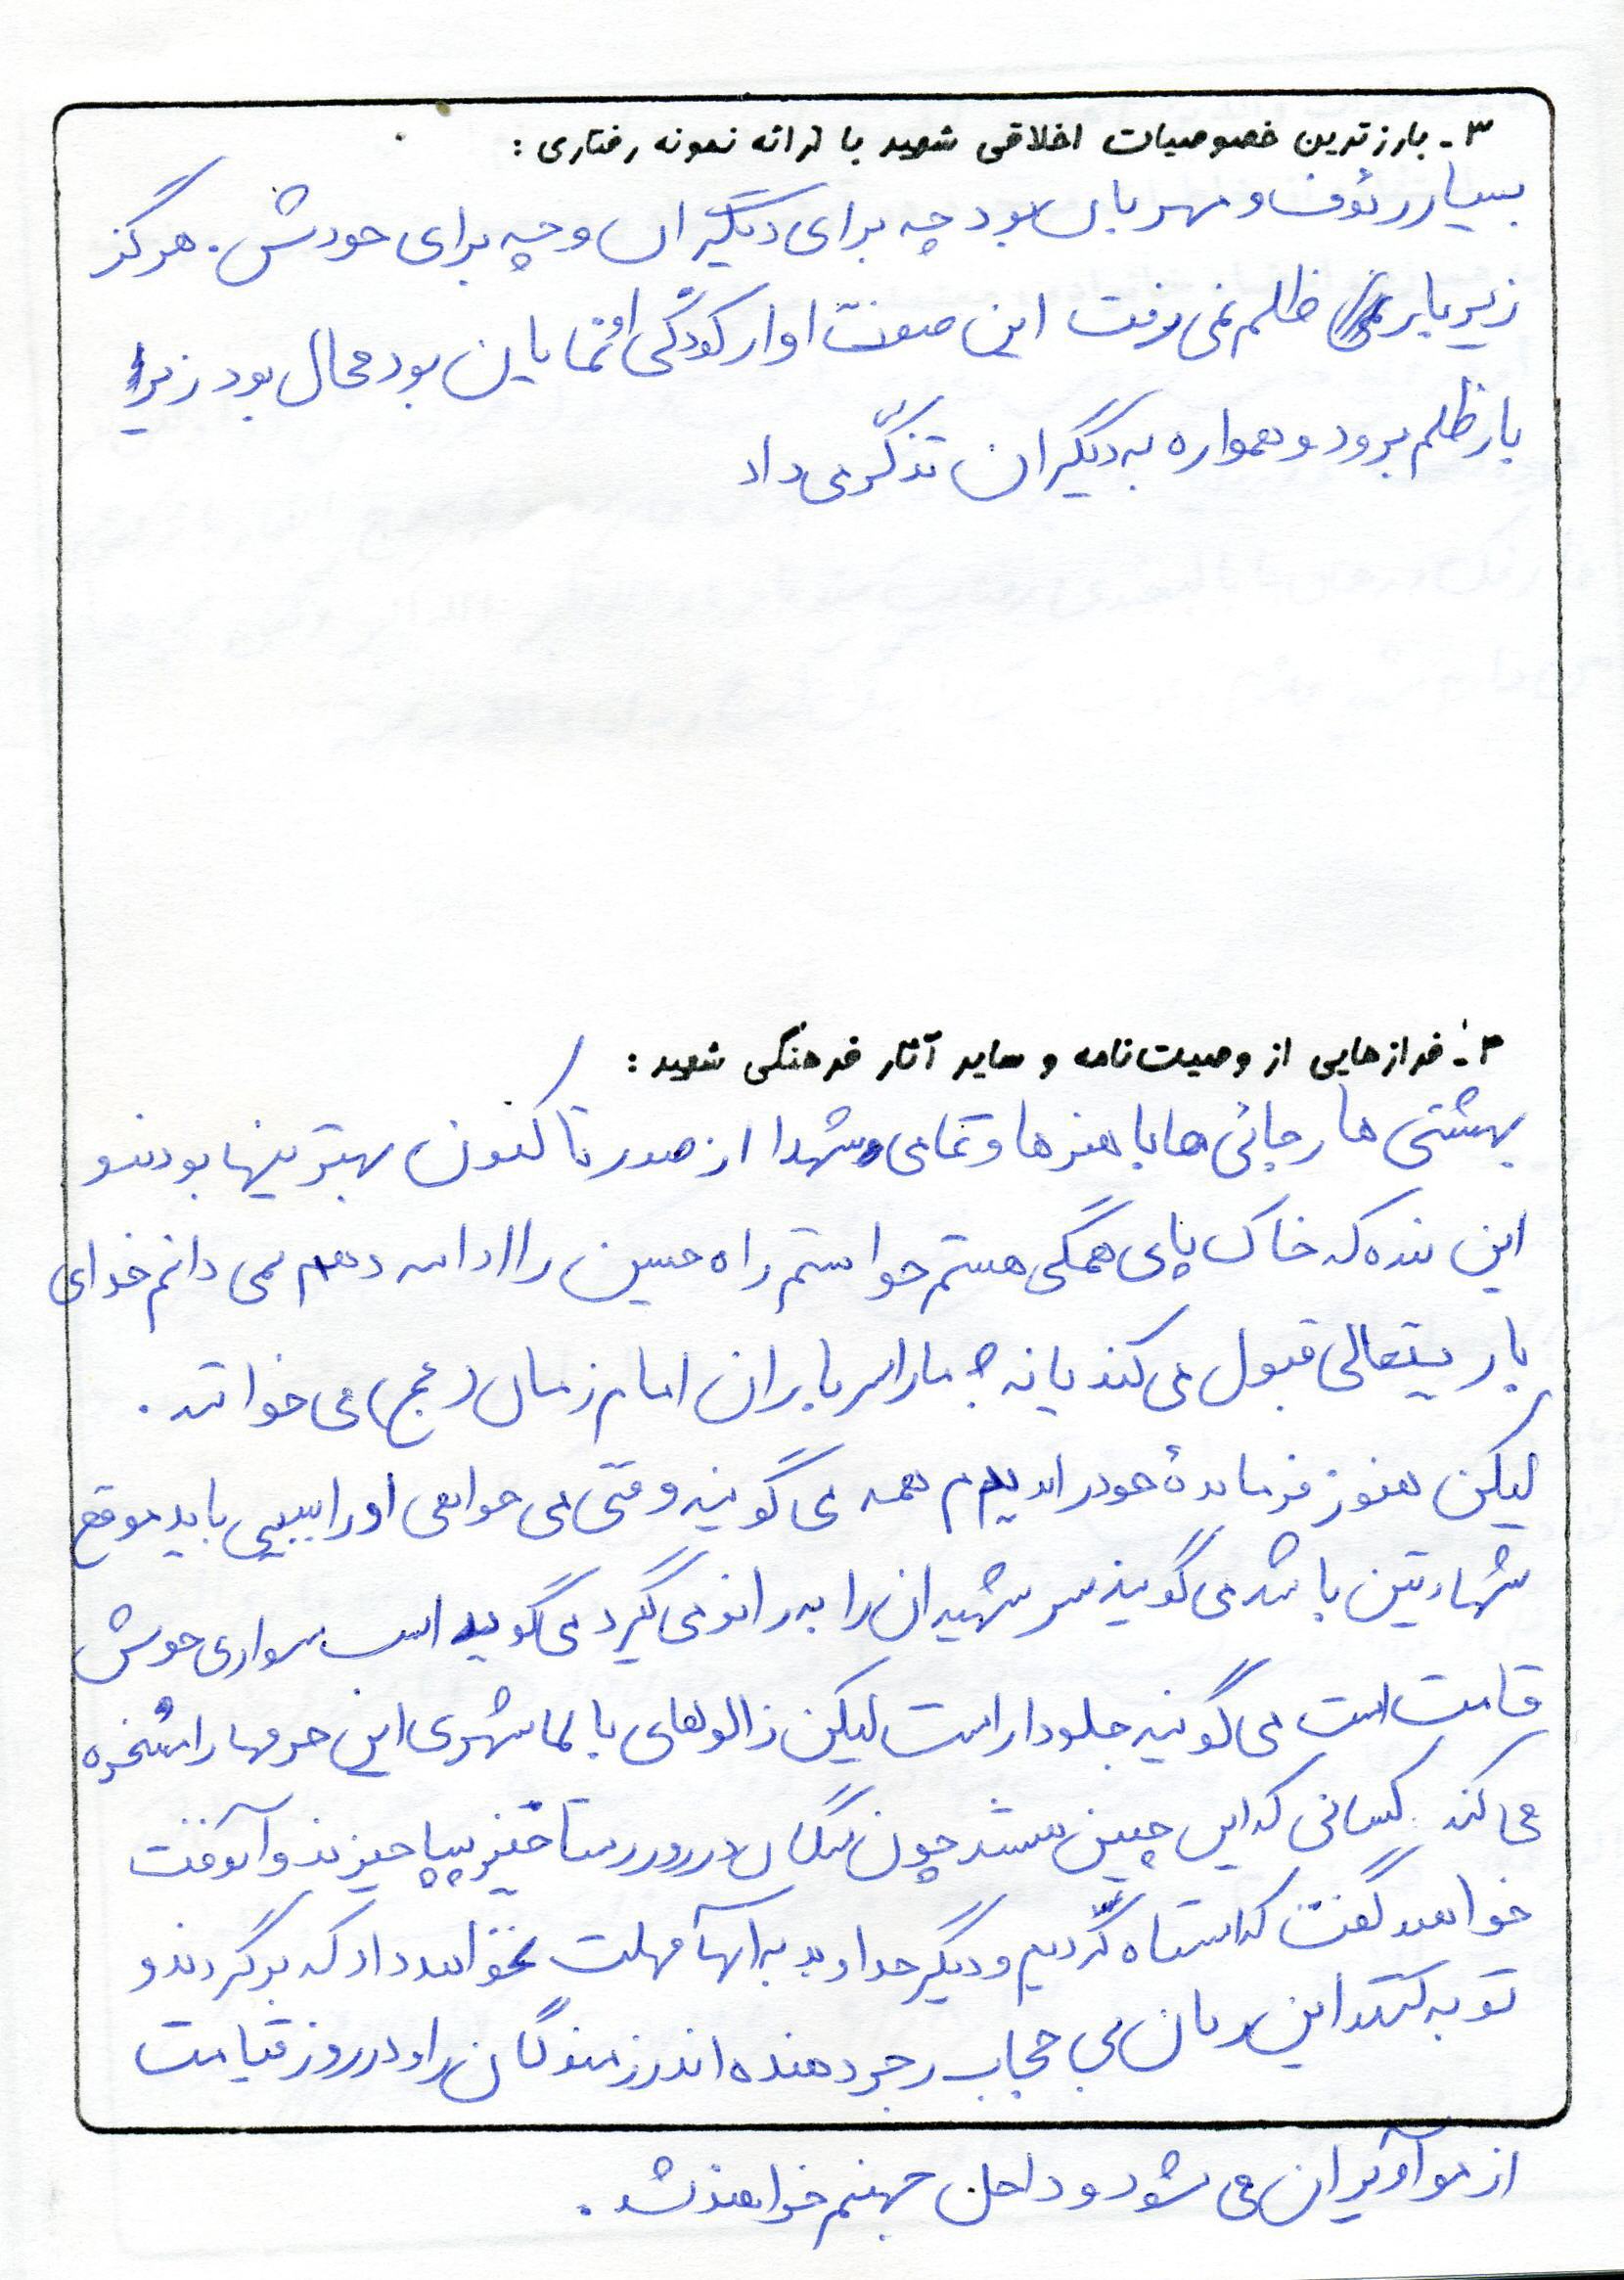 ۳ ـ بارزترین خصوصیات اخلاقی شهید با ارائه نمونه رفتاری :
بسیار رئوف و مهربان بود چه برای دیگران و چه برای خودش . هرگز
زیر بار ظلم نمی رفت این صفت او از کودکی نمایان بود محال بود زیر
بار ظلم برود و همواره به دیگران تذکّر می داد
۴ ـ فرازهایی از وصیت‌نامه و سایر آثار فرهنگی شهید :
بهشتی ها رجائی ها باهنرها و تمامی شهدا از صدر تا کنون بهترینها بودند و
این بنده که خاک پای همگی هستم خواستم راه حسین را ادامه دهم نمی دانم خدای
باریتعالی قبول می کند یا نه ؟ ما را سربازان امام زمان (عج) می خوانند .
لیکن هنوز فرمانده خود را ندیدیم همه می گویند وقتی می خواهی او را ببینی باید موقع
شهادتین باشد می گویند سر شهیدان را به زانو می گیرد می گویند اسب سواری خوش
قامت است می گویند جلودار است لیکن زالوهای بالاشهری این حرفها را مسخره
می کنند . کسانی که این چنین هستند چون سگان در روز رستاخیز بپا خیزند و آنوقت
خواهند گفت که اشتباه کردیم و دیگر خداوند به آنها مهلت نخواهد داد که برگردند و
توبه کنند این زنان بی حجاب زجر دهنده اند رزمندگان را و در روز قیامت
از مو آویزان می شود و داخل جهنم خواهند شد .